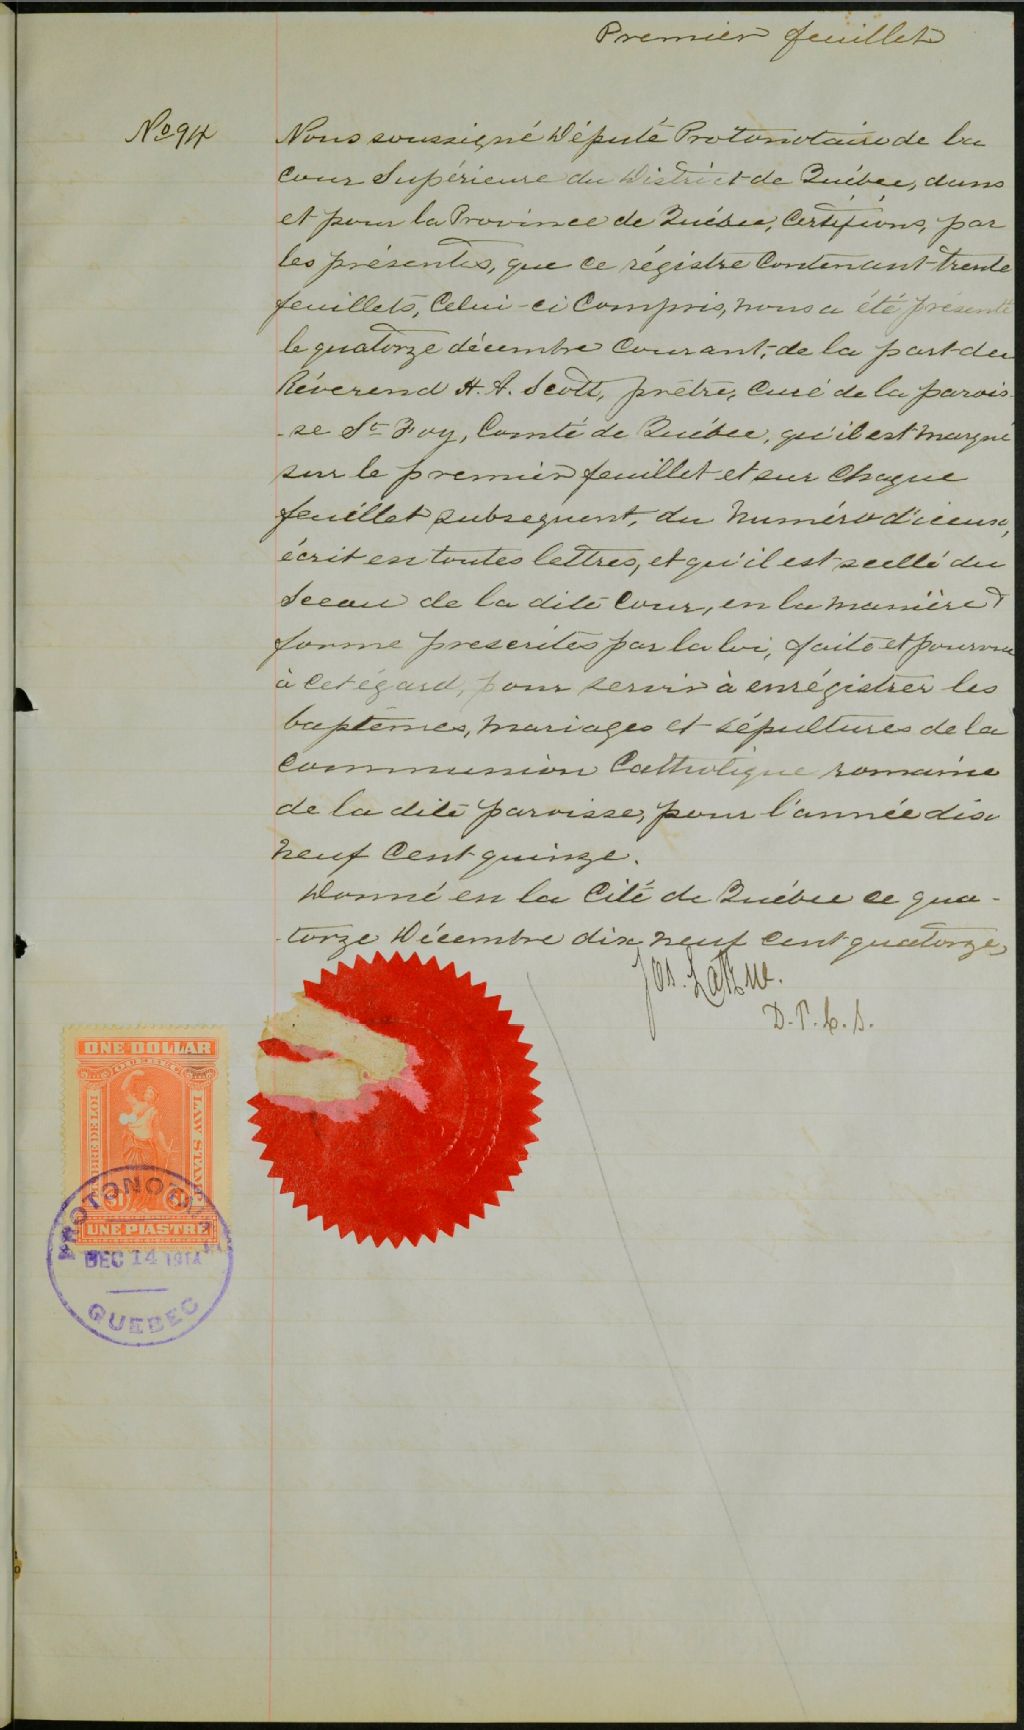 Premier feuillet
No 94
Nous soussigné Député Protonotaire de la
Cour Supérieure du District de Québec, dans
et pour la Province de Québec, Certifions, par
les présentes, que ce régistre Contenant trente
feuillets, Celui-ci Compris, nous a été présenté
le quatorze décembre Courant, de la part du
Révérend H. A. Scott, prêtre, Curé de la parois-
-se Ste Foy, Comté de Québec, qu'il est marqué
sur le premier feuillet et sur Chaque
feuillet subsequent, du Numéro d'iceux,
écrit en toutes lettres, et qu'il est scellé du
Sceau de la dite Cour, en la manière &
forme prescrites par la loi, faite et pourvue
à cet égard, pour servir à enrégistrer les
baptêmes, Mariages et sépultures de la
Communion Catholique romaine
de la dite paroisse, pour l'année dix
neuf Cent quinze.
Donné en la Cité de Québec ce qua-
-torze Décembre dix neuf Cent quatorze,
Jos. LaRue.
D. P. C. S.
ONE DOLLAR
QUEBEC
TIMBRE DE LOI
LAW STAMP
$1
UNE PIASTRE
PROTONOTAIRE
DEC 14 1914
QUEBEC